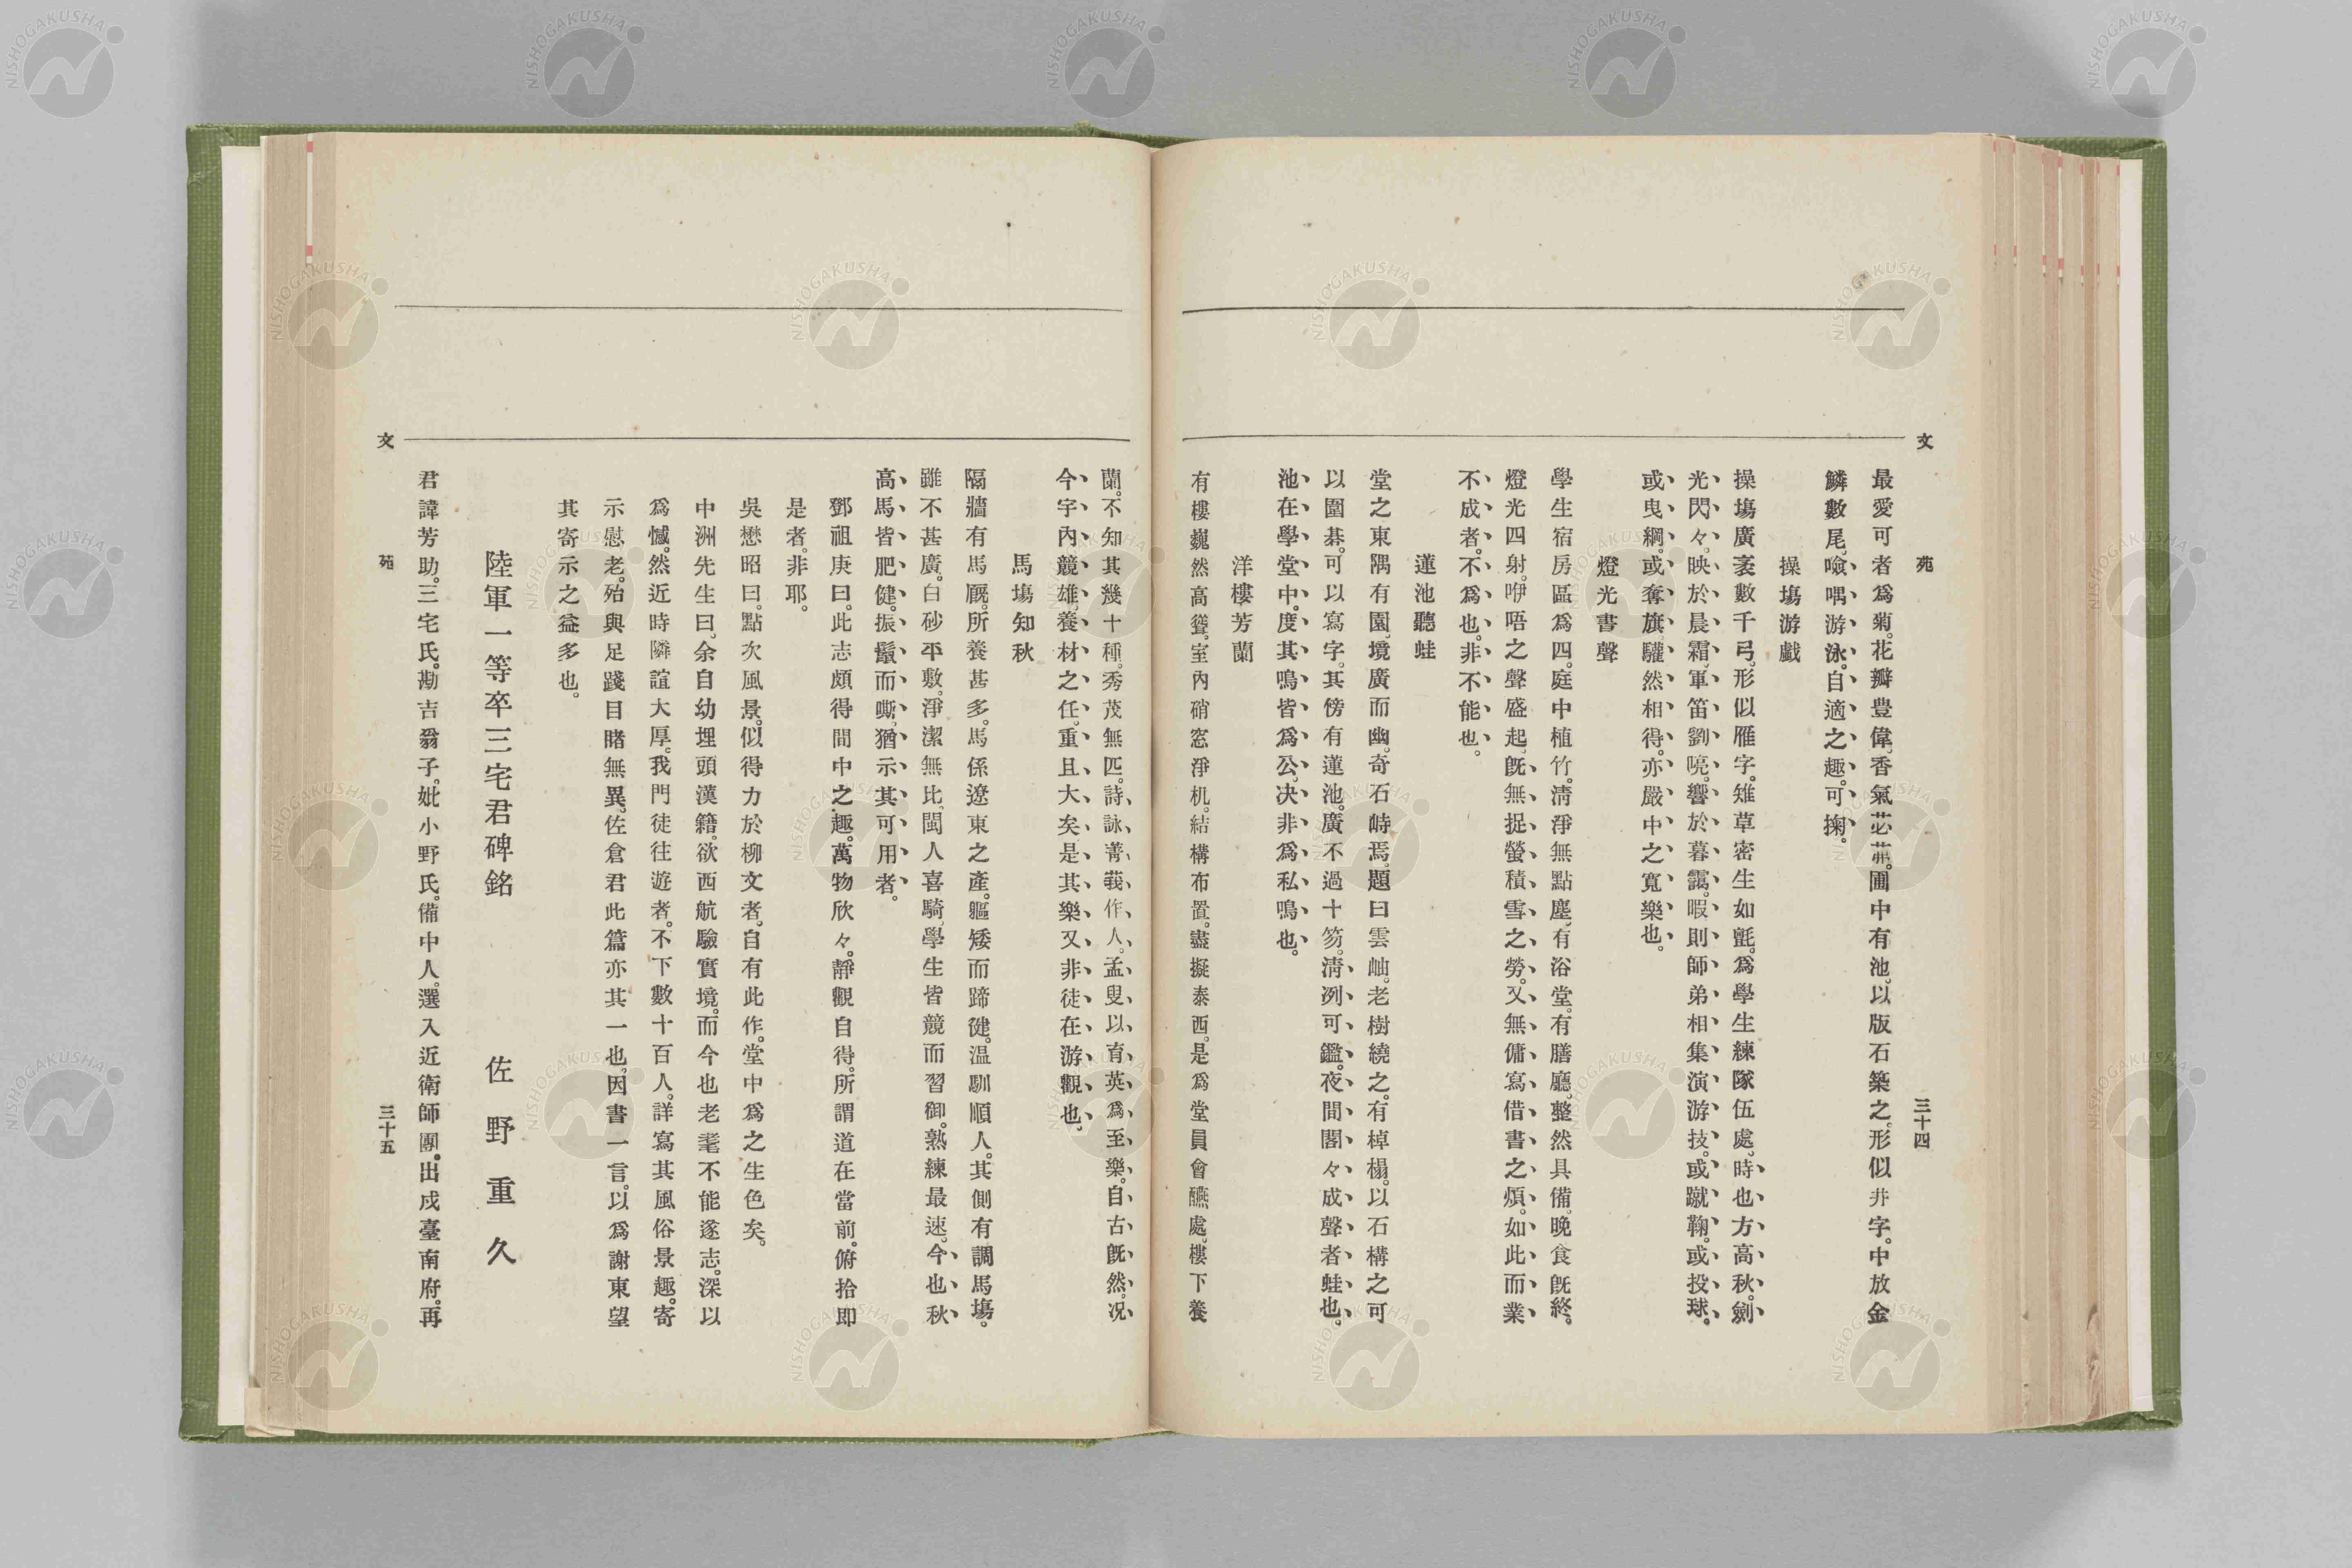 文 苑 三十四
最愛可者爲菊。花瓣豊偉、香氣苾茀。圃中有池。以版石築之。形似井字。中放金
鱗數尾、噞喁游泳。自適之趣。可掬。
操塲游戯
操塲廣袤數千弓。形似雁字。雉草密生如氈。爲學生練隊伍處、時也方高秋。劍
光閃々。映於晨霜、軍笛劉喨。響於暮靄。暇則師弟相集演游技。或蹴鞠。或投球。
或曳綱。或奪旗、驩然相得。亦嚴中之寬樂也。
燈光書聲
學生宿房區爲四。庭中植竹。淸淨無點塵、有浴堂。有膳廳。整然具備。晚食旣終。
燈光四射。咿唔之聲盛起、旣無捉螢積雪之勞。又無傭寫借書之煩。如此而業
不成者。不爲也。非不能也。
蓮池聽蛙
堂之東隅有園、境廣而幽。奇石峙焉、題曰雲岫。老樹繞之。有棹榻。以石構之可
以圍碁。可以寫字。其傍有蓮池。廣不過十笏。淸冽可鑑。夜間閣々成聲者蛙也。
池在學堂中。度其鳴皆爲公、决非爲私鳴也。
洋樓芳蘭
有樓巍然高聳。室內硝窓淨机。結構布置。盡擬泰西。是爲堂員會醼處、樓下養
蘭。不知其幾十種。秀茂無匹。詩詠菁莪作人。孟叟以育英爲至樂。自古旣然。况
今宇內競雄、養材之任。重且大矣是其樂又非徒在游觀也、
馬塲知秋
隔牆有馬厩。所養甚多。馬係遼東之產。軀矮而蹄健。溫馴順人。其側有調馬塲。
雖不甚廣。白砂平敷。淨潔無比、閩人喜騎、學生皆競而習御。熟練最速。今也秋
高馬皆肥健。振鬣而嘶、猶示其可用者。
鄧祖庚曰。此志頗得間中之趣。萬物欣々。靜觀自得。所謂道在當前。俯拾即
是者。非耶。
吳懋昭曰。點次風景。似得力於柳文者。自有此作。堂中爲之生色矣。
中洲先生曰、余自幼埋頭漢籍。欲西航驗實境。而今也老耄不能遂志。深以
爲憾。然近時隣誼大厚。我門徒往遊者。不下數十百人。詳寫其風俗景趣。寄
示慰老。殆與足踐目睹無異。佐倉君此篇亦其一也。因書一言。以爲謝東望
其寄示之益多也。
陸軍一等卒三宅君碑銘 佐野重久
君諱芳助。三宅氏。勘吉翁子。妣小野氏。備中人。選入近衛師團。出戍臺南府。再
文 苑 三十五